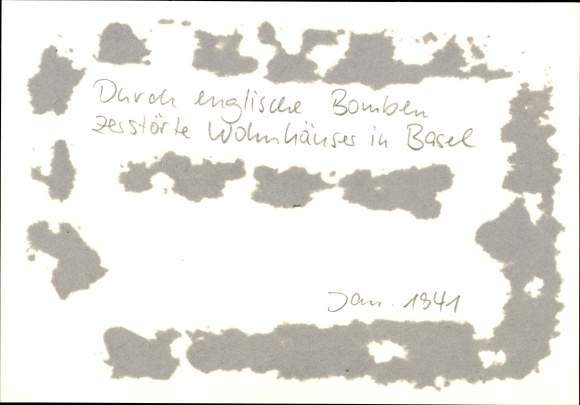 Durch englische Bomben
zerstörte Wohnhäuser in Basel
Jan. 1941